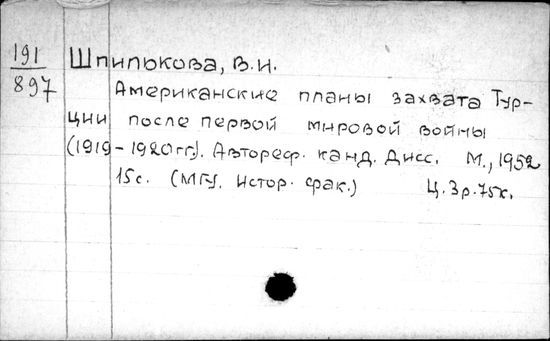 191
897
Шпилькова, В.И.
Американские планы захвата Тур-
ции после первой мировой войны
(1919-1920гг). Автореф. канд. Дисс. М., 1952
15с. (МГУ. Истор. фак.) Ц. 3р.75к.